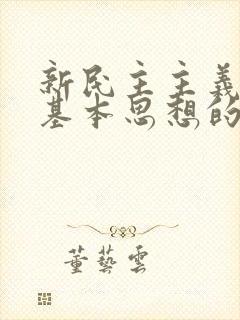 新民主主義
基本思想的
董藝雲